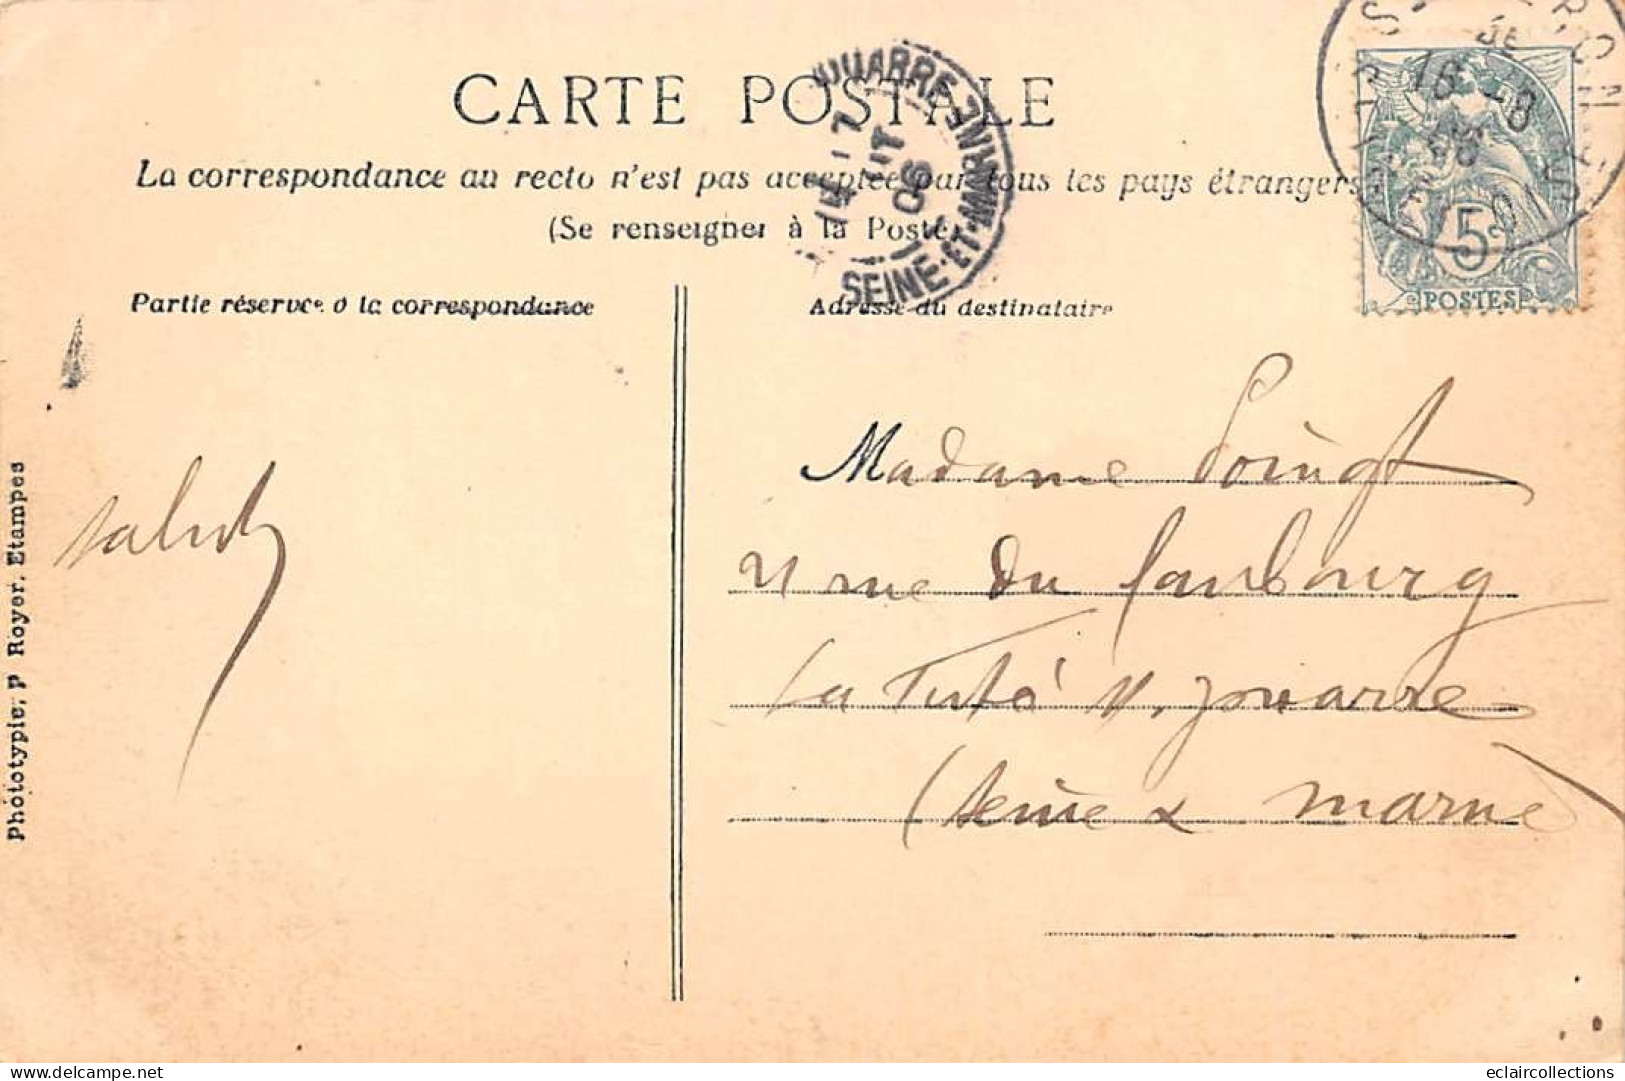 CARTE POSTALE
La correspondance au recto n'est pas acceptée par tous les pays étrangers
(Se renseigner à la Poste)
Partie réservée à la correspondance
Adresse du destinataire
JOUARRE
SEINE-ET-MARNE
06
5
POSTES
salut
Madame Poingt
rue du faubourg
la Ferté s. Jouarre
(Seine & Marne
Phototypie, P Royer. Etampes
delcampe.net
eclaircollections